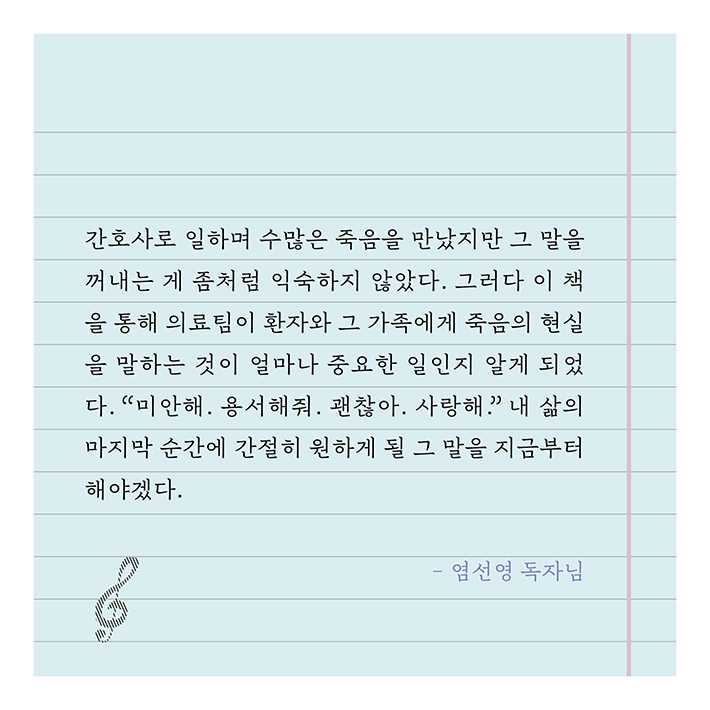 간호사로 일하며 수많은 죽음을 만났지만 그 말을
꺼내는 게 좀처럼 익숙하지 않았다. 그러다 이 책
을 통해 의료팀이 환자와 그 가족에게 죽음의 현실
을 말하는 것이 얼마나 중요한 일인지 알게 되었
다. “미안해. 용서해줘. 괜찮아. 사랑해.” 내 삶의
마지막 순간에 간절히 원하게 될 그 말을 지금부터
해야겠다.
– 염선영 독자님